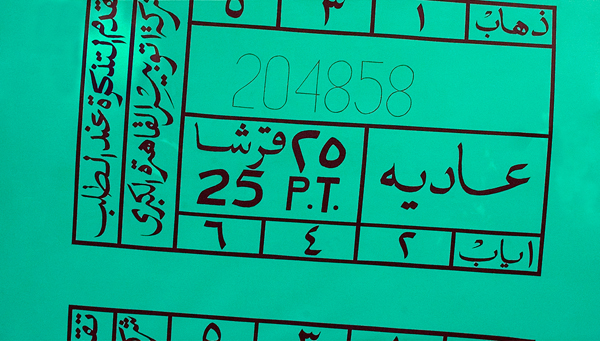 ذهاب ١ ٣ ٥
204858
عاديه
٢٥ قرشا
25 P.T.
اياب ٢ ٤ ٦
شركة اتوبيس القاهرة الكبرى
تقدم التذكرة عند الطلب